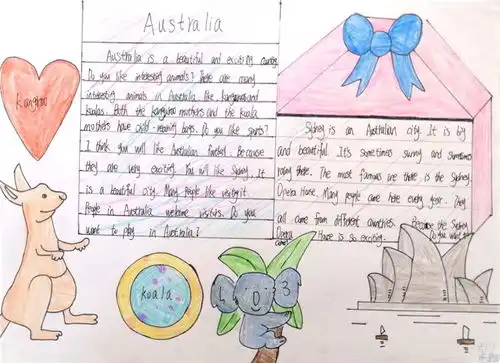 Australia
Australia is a beautiful and exciting country.
Do you like interesting animals? There are many
interesting animals in Australia like kangaroos and
koalas. Both the kangaroo mothers and the koala
mothers have bags. Do you like sports?
I think you will like Australian Football. Because
they are very exciting. You will like Sydney. It
is a beautiful city. Many people like visiting it.
People in Australia welcome visitors. Do you
want to play in Australia?
kangaroo
koala
Sydney is an Australian city. It is big
and beautiful. It's sometimes sunny and sometimes
rainy there. The most famous are there is the Sydney
Opera House. Many people came here every year. They
all come from different countries. Because the Sydney
Opera House is so exciting. Do you want to
come?